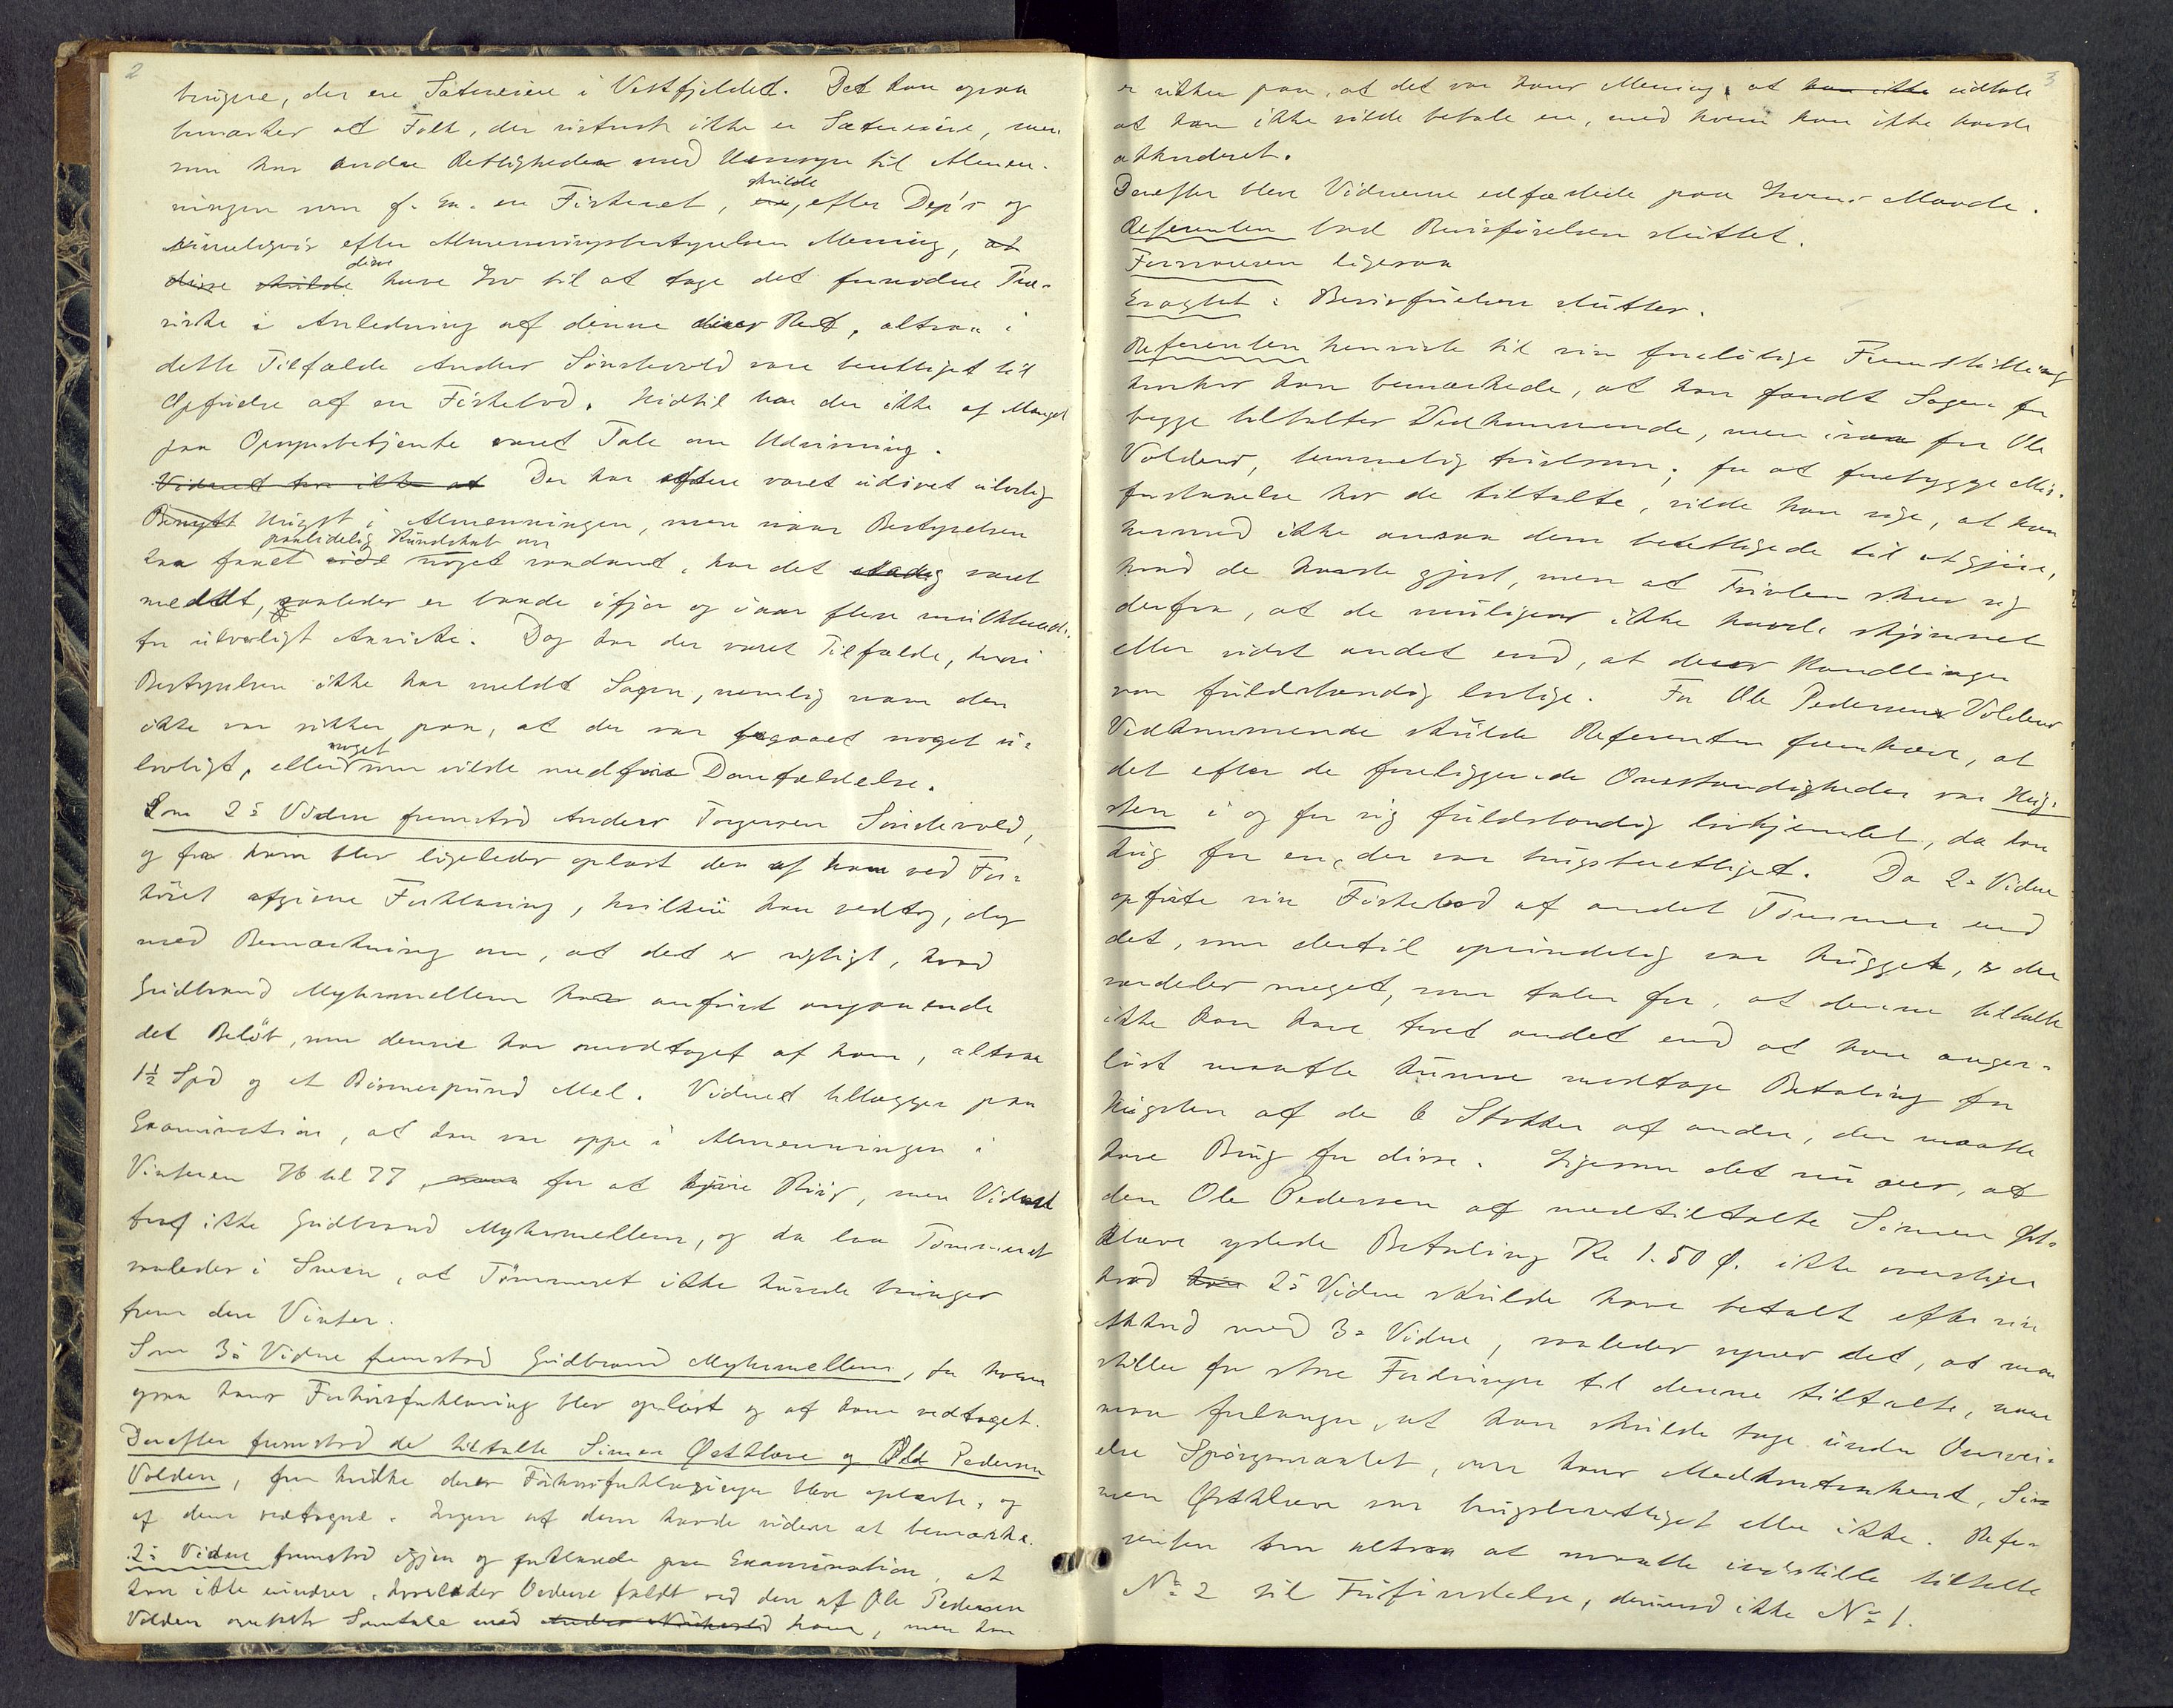 2
brugere, der ere Sætereiere i Vestfjeldet. Det kan ogsaa
bemærkes at Folk, der vistnok ikke er Sætereiere, men
som har andre Rettigheder med Hensyn til Almen-
ningen som f. Ex. en Fiskeret, skulde efter Dep's og
rimeligvis efter Almenningsbestyrelsens Mening,
disse have Lov til at tage det fornødne Træ-
virke i Anledning af denne deres Ret, altsaa i
dette Tilfælde Anders Sønstevold være berettiget til
Opførelse af en Fiskebod. Hidtil har der ikke af Mangel
paa Opsynsbetjente været Tale om Udvisning.
Vidnet tør ikke at Der har oftere været udøvet ulovlig
Hugst i Almenningen, men naar Bestyrelsen
har faaet paalidelig Kundskab om noget saadant, har det stadig været
meldt, saaledes er baade ifjor og iaar flere mulkterede
for ulovligt Anvirke. Dog har der været Tilfælde, hvori
Bestyrelsen ikke har meldt Sagen, nemlig naar den
ikke var sikker paa, at der var foregaaet noget u-
lovligt, eller noget som vilde medføre Domfældelse.
Som 2det Vidne fremstod Anders Torgersen Sønstevold,
og for ham blev ligeledes oplæst den af ham ved For-
høret afgivne Forklaring, hvilken han vedtog, dog
med Bemærkning om, at det er rigtigt, hvad
Gudbrand Myhrmellem har anført angaaende
det Beløb, som denne har modtaget af ham, altsaa
1½ Spd og et Bismerpund Mel. Vidnet tillægger paa
Examination, at han var oppe i Almenningen i
Vinteren 76 til 77, for at kjøre Riis, men Vidnet
traf ikke Gudbrand Myhrmellem, og da laa Tømmeret
saaledes i Sneen, at Tømmeret ikke kunde bringes
frem den Vinter.
Som 3die Vidne fremstod Gudbrand Myhrmellem, for hvem
ogsaa hans Forhørsforklaring blev oplæst og af ham vedtaget.
Derefter fremstod de tiltalte Simen Østklæve og Ole Pedersen
Volden, for hvilke deres Forhørsforklaringer bleve oplæste, og
af dem vedtagne. Ingen af dem havde videre at bemærke.
2det Vidne fremstod igjen og forklarede paa Examination, at
han ikke mindes, hvorledes Ordene faldt ved den af Ole Pedersen
Volden omtalte Samtale med ham, men han
3
er sikker paa, at det var hans Mening, at han ikke udtale
at han ikke vilde betale en, med hvem han ikke havde
akkorderet.
Derefter bleve Vidnerne edfæstede paa Lovens Maade.
Referenten lod Bevisførelsen sluttet.
Forsvareren ligesaa
Eragtet: Bevisførelsen sluttes.
Referenten henviste til sin foreløbige Fremstilling
hvorhos han bemærkede, at han fandt Sagen for
begge tiltaltes Vedkommende, men især for Ole
Voldens, temmelig tvivlsom; for at forebygge Mis-
forstaaelse hos de tiltalte, vilde han sige, at han
hermed ikke ansaa dem berettigede til at gjøre,
hvad de havde gjort, men at Tvivlen skrev sig
derfra, at de muligens ikke havde skjønnet
eller vidst andet end, at deres Handlinger
var fuldstændig lovlige. For Ole Pedersen Voldens
Vedkommende skulde Referenten fremhæve, at
det efter de foreliggende Omstændigheder var Hug-
sten i og for sig fuldstændig lovhjemlet, da han
hug for en, der var hugstberettiget. Da 2det Vidne
opførte sin Fiskebod af andet Tømmer end
det, som dertil oprindelig var hugget, er der
særdeles meget, som taler for, at denne tiltalte
ikke kan have troet andet end at han anger-
løst maatte kunne modtage Betaling for
Hugsten af de 6 Stokker af andre, der maatte
have Brug for disse. Ligesom det nu sees, at
den Ole Pedersen af medtiltalte Simen Øst-
klæve ydede Betaling Kr 1.50 Ø. ikke overstiger
hvad 2det Vidne skulde have betalt efter sin
Akkord med 3die Vidne, saaledes synes det, at man
stiller for store Fordringer til denne tiltalte, naar
man forlanger, at han skulde tage under Overvei-
else Spørgsmaalet, om hans Medkontrahent, Si-
men Østklæve var brugsberettiget eller ikke. Refe-
renten tror altsaa at maatte indstille tiltalte
No 2 til Frifindelse, derimod ikke No 1.